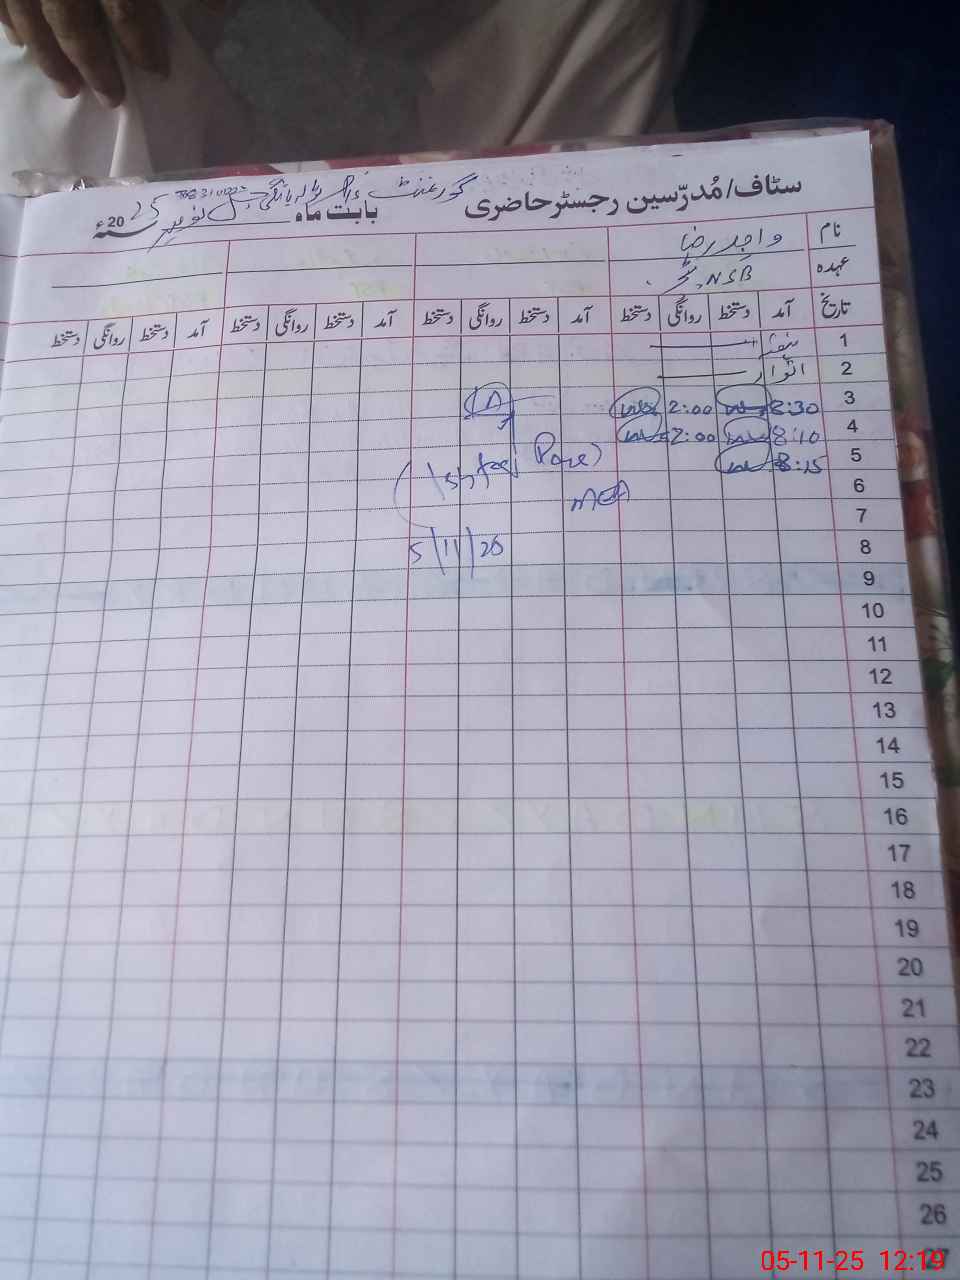 سٹاف/مُدرّسین رجسٹر حاضری گورنمنٹ بابت ماہ نومبر 2025ء
نام واجد رضا
عہدہ NSB
تاریخ آمد دستخط روانگی دستخط آمد دستخط روانگی دستخط آمد دستخط روانگی دستخط آمد دستخط روانگی دستخط
1 ہفتہ
2 اتوار
3 8:30 2:00
4 8:10 2:00
5 8:15
6 MEA
7
8 5/11/25
9
10
11
12
13
14
15
16
17
18
19
20
21
22
23
24
25
26
27
05-11-25 12:19